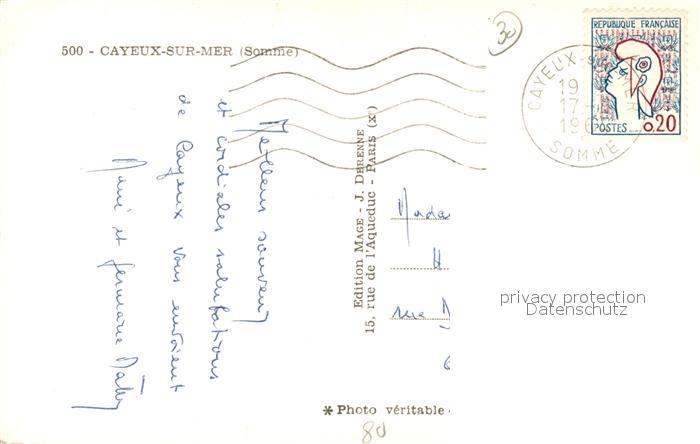 500 - CAYEUX-SUR-MER (Somme)
30
RÉPUBLIQUE FRANÇAISE
POSTES 0,20
CAYEUX-S MER
19
17-
196
SOMME
Meilleurs souvenirs
et cordiales salutations
de Cayeux vous envoient
René et Germaine
Edition MAGE - J. DERENNE
15, rue de l'Aqueduc - PARIS (Xe)
Mada
H
rue
privacy protection
Datenschutz
* Photo véritable
80